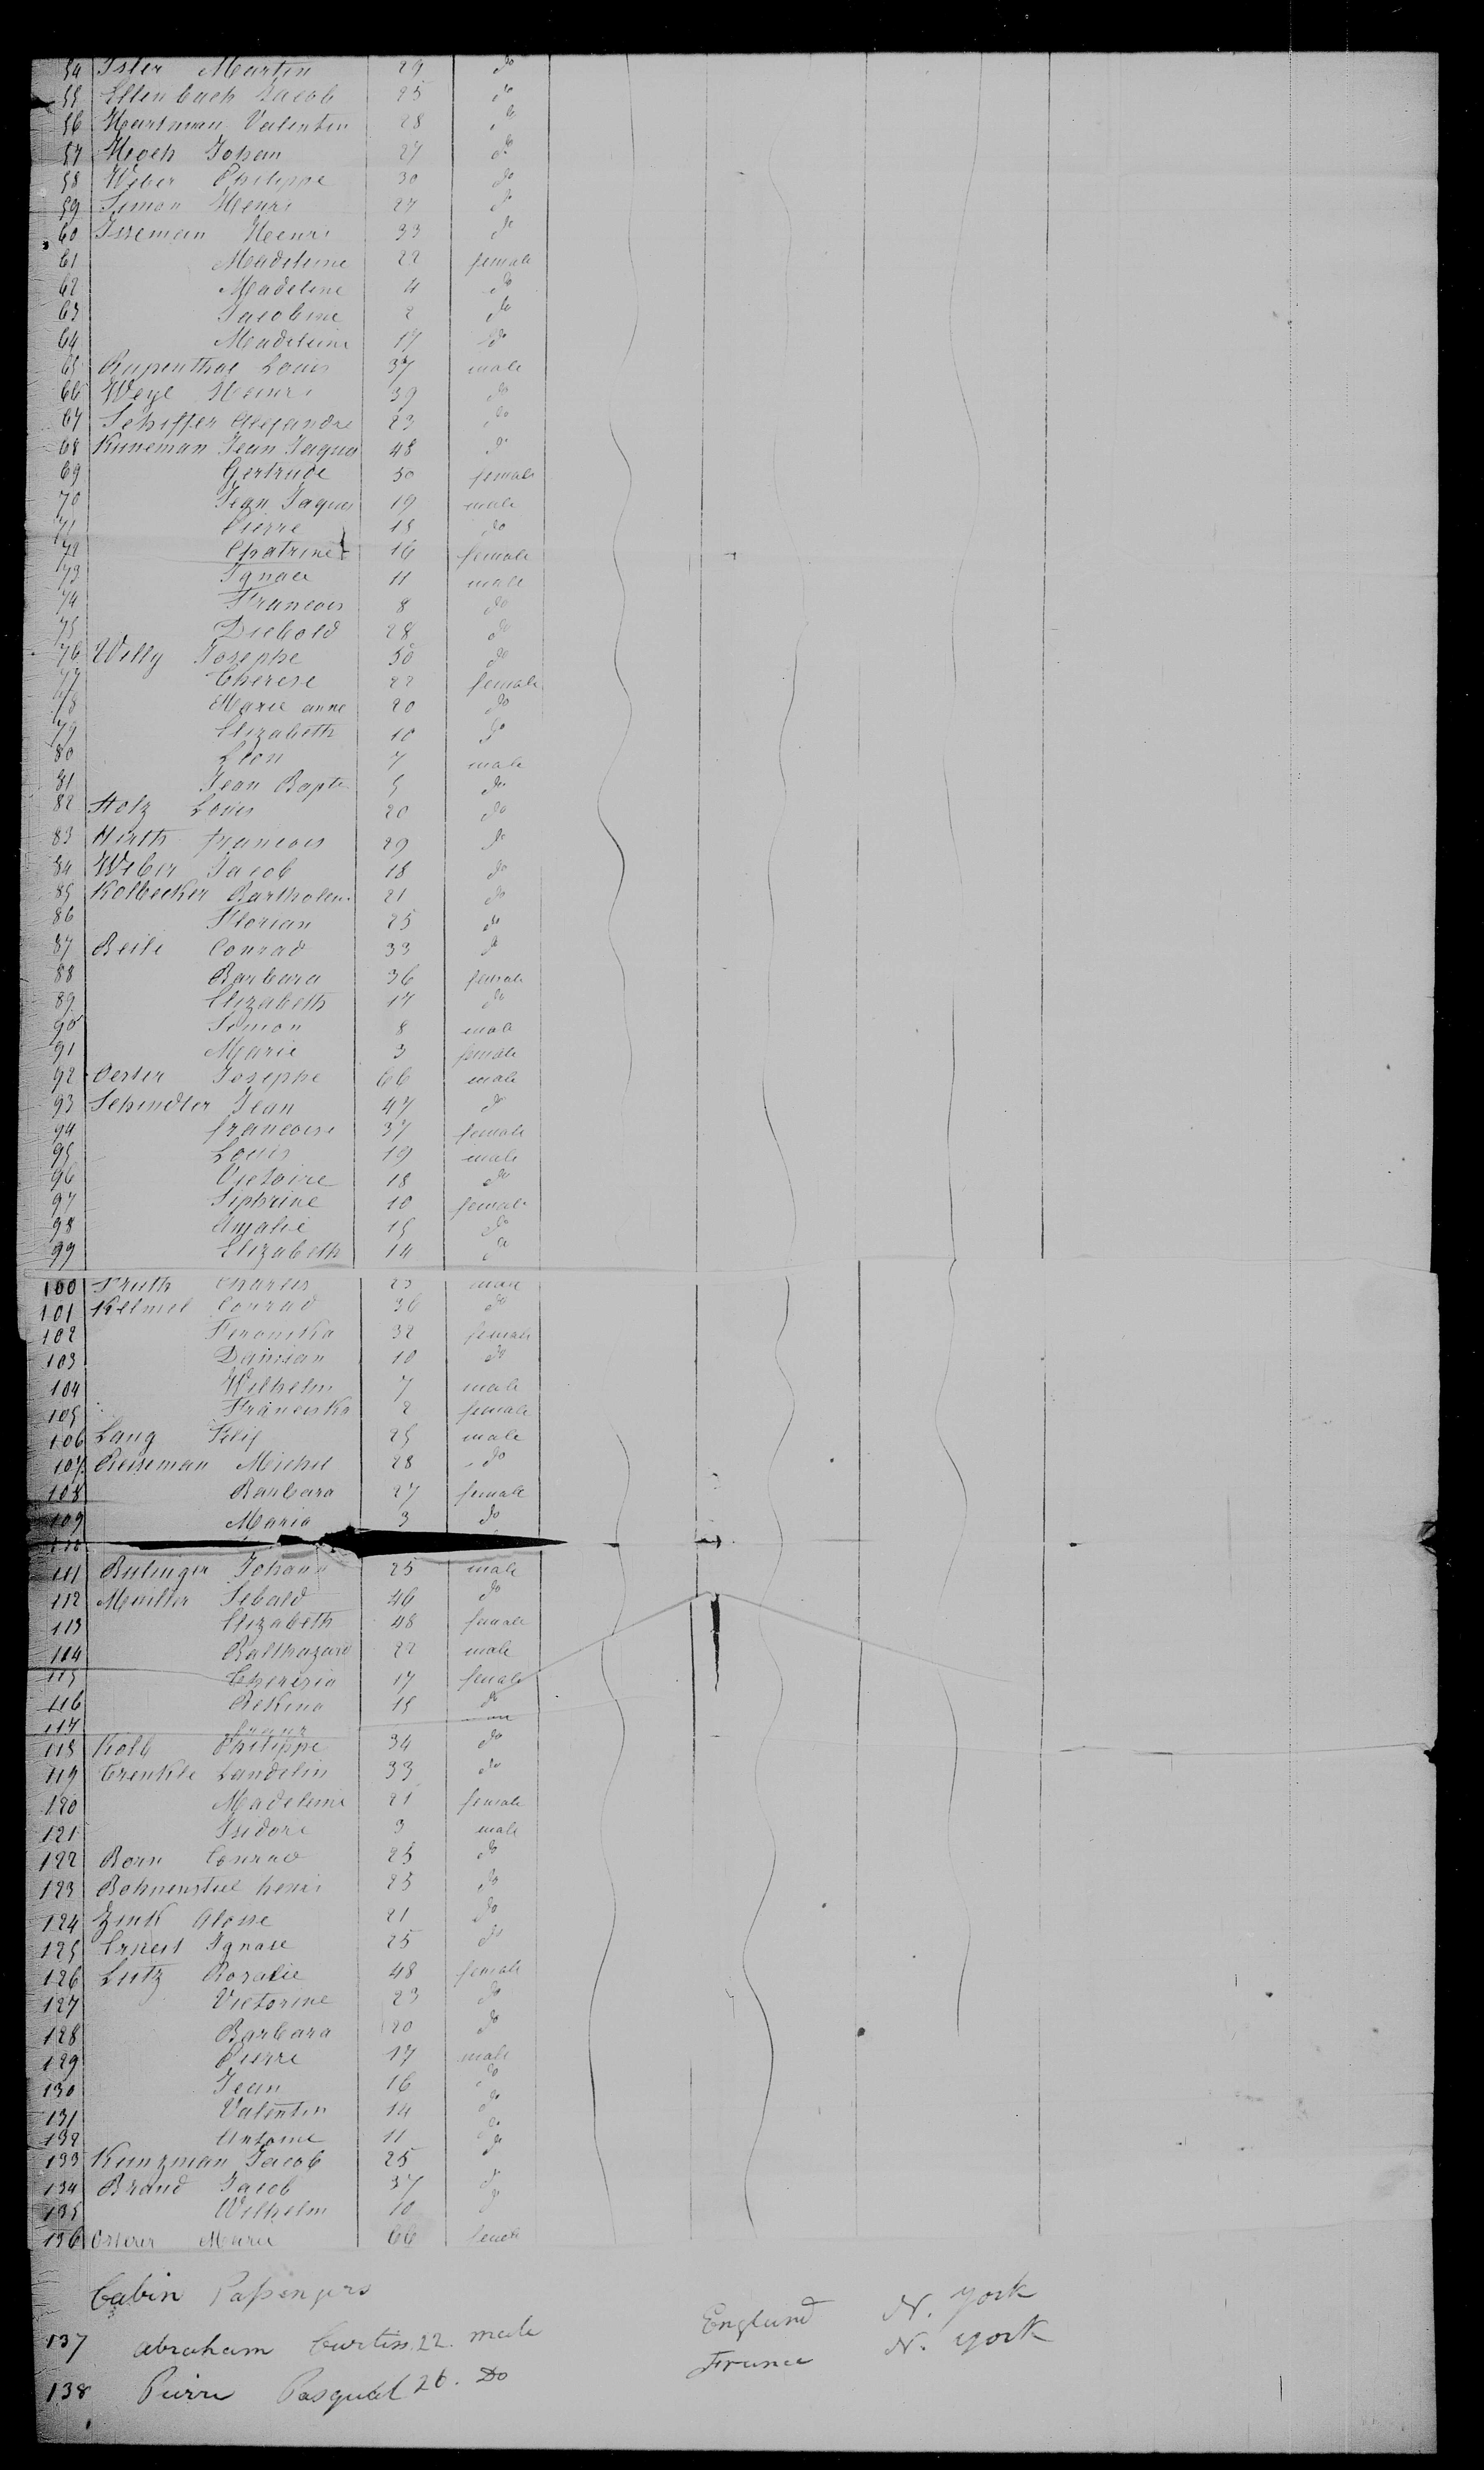 54 Isler Martin 29 do
55 Ellenbach Jacob 25 do
56 Hartman Valentin 28 do
57 Hoch Johan 27 do
58 Weber Philippe 30 do
59 Simon Henri 27 do
60 Isseman Henri 33 do
61 Madeleine 22 female
62 Madelene 4 do
63 Jacobine 2 do
64 Madeleine 17 do
65 Rupenthal Louis 37 male
66 Weyl Henri 39 do
67 Schiffer Alexandre 23 do
68 Kuneman Jean Jaques 48 do
69 Gertrude 50 female
70 Jean Jaques 19 male
71 Pierre 18 do
72 Chatrine 16 female
73 Ignace 11 male
74 Francois 8 do
75 Diebold 28 do
76 Willy Josephe 50 do
77 Therese 22 female
78 Marie anne 20 do
79 Elizabeth 10 do
80 Leon 7 male
81 Jean Bapte 5 do
82 Stolz Louis 20 do
83 Hirth francois 29 do
84 Weber Jacob 18 do
85 Kolbecker Bartholem 21 do
86 Florian 25 do
87 Beile Conrad 33 do
88 Barbara 36 female
89 Elizabeth 17 do
90 Simon 8 male
91 Marie 3 female
92 Oerter Josephe 66 male
93 Schindler Jean 47 do
94 francoise 37 female
95 Louis 19 male
96 Victoire 18 do
97 Siphrine 10 female
98 Amalie 15 do
99 Elizabeth 14 do
100 Fruth Charles 23 male
101 Kelmel Conrad 36 do
102 Feronika 32 female
103 Damian 10 do
104 Wilhelm 7 male
105 Franciska 2 female
106 Lang Felix 25 male
107 Michel 28 do
108 Barbara 27 female
109 Maria 3 do
110
111 Bulinger Johann 25 male
112 Muiller Sebald 46 do
113 Elizabeth 48 female
114 Balthazard 22 male
115 Theresia 17 female
116 Rekina 15 do
117 franz
118 Kolb Philippe 34 do
119 Trenkle Landelin 33 do
120 Madeleine 21 female
121 Isidore 3 male
122 Born Conrad 25 do
123 Bohnenstiel henri 25 do
124 Zink Aloise 21 do
125 Ernest Ignase 25 do
126 Lutz Rosalie 48 female
127 Victorine 23 do
128 Barbara 20 do
129 Pierre 17 male
130 Jean 16 do
131 Valentin 14 do
132 Antoine 11 do
133 Kunzman Jacob 25 do
134 Brand Jacob 37 do
135 Wilhelm 10 do
136 Marie 66 female
Cabin Passengers
137 Abraham Curtis 22. male England N. York
138 Pierre Pasqual 26. Do France N. York